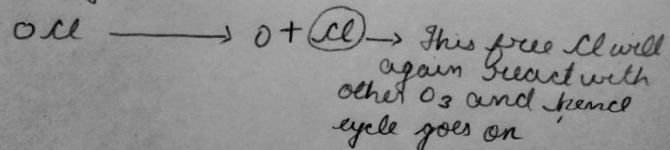 OCl → O + Cl → This free Cl will
again react with
other O3 and hence
cycle goes on